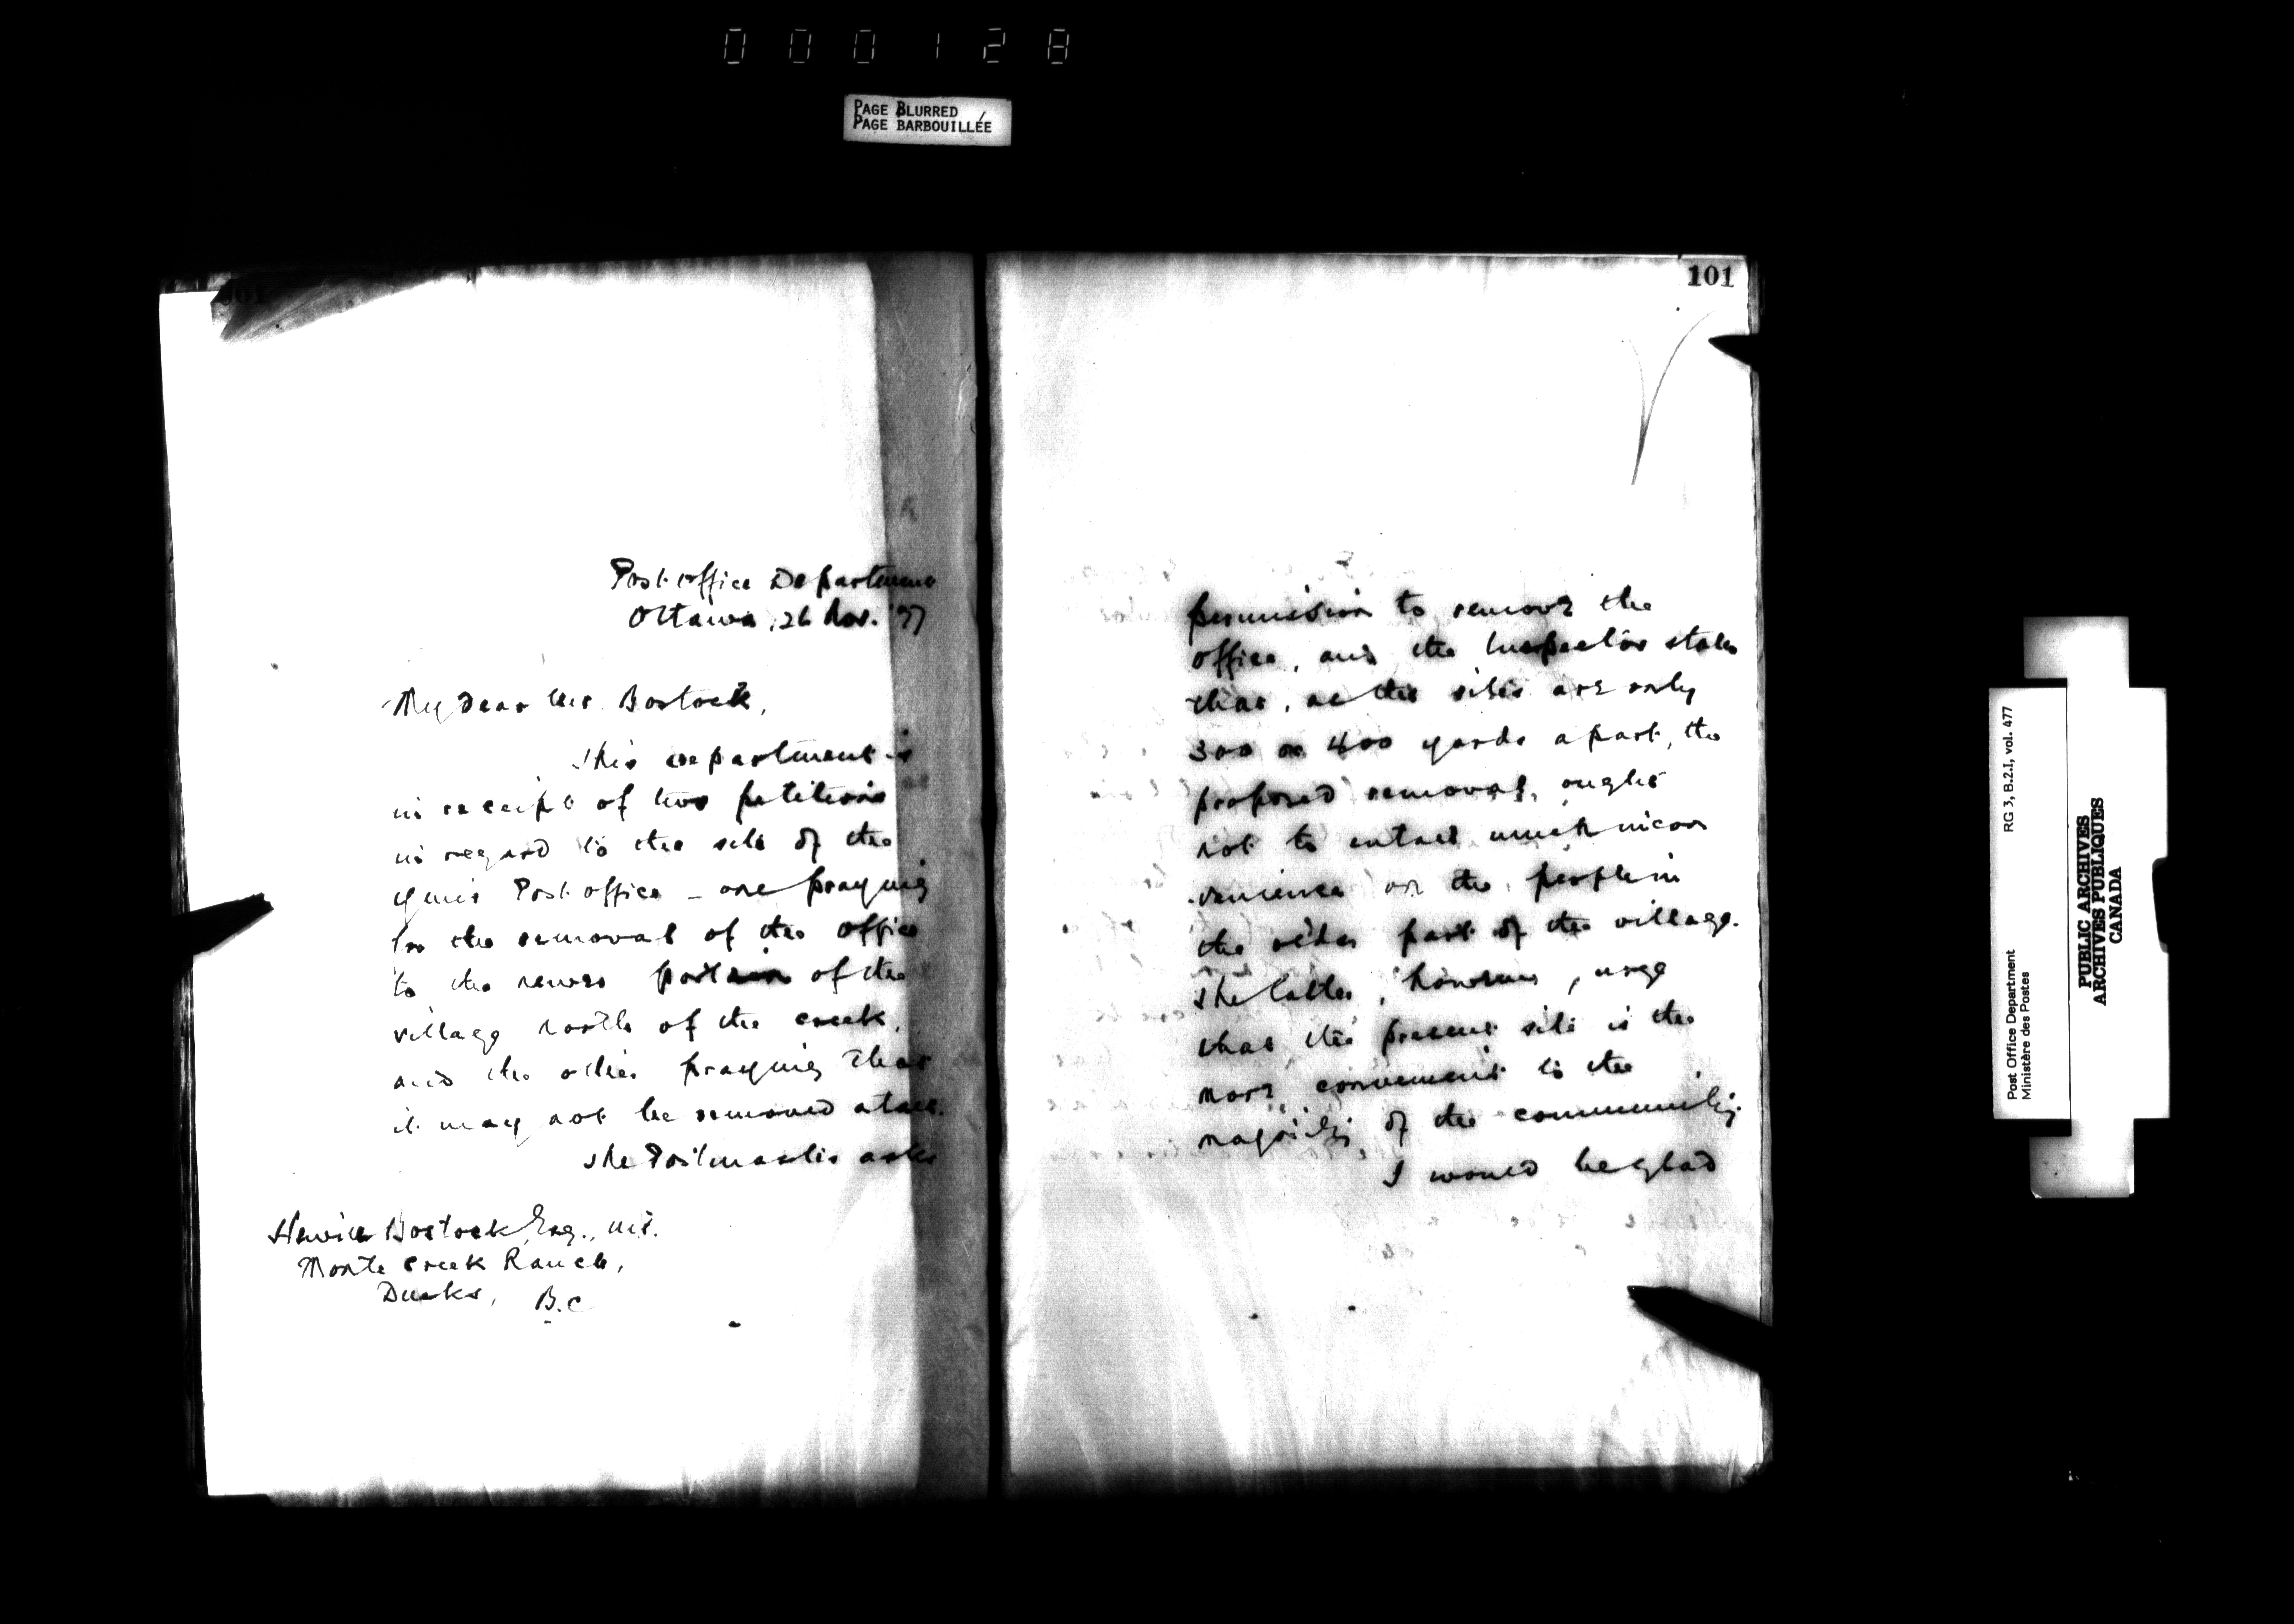 000128
PAGE BLURRED
PAGE BARBOUILLÉE
Post office Department
Ottawa, 26 Nov. '97
My dear Mr. Bostock,
This department is
in receipt of two petitions
in regard to the site of the
Post office – one praying
for the removal of the office
to the newer portion of the
village north of the creek,
and the other praying that
it may not be removed at all.
The Postmaster asks
Hewitt Bostock, Esq., M.P.
Monte Creek Ranch,
Ducks, B.C
101
permission to remove the
office, and the Inspector states
that, as the sites are only
300 or 400 yards apart, the
proposed removal, ought
not to entail much incon
venience on the people in
the older part of the village.
The latter, however, urge
that the present site is the
more convenient to the
majority of the community.
I would be glad
RG 3, B.2.I, vol. 477
Post Office Department
Ministère des Postes
PUBLIC ARCHIVES
ARCHIVES PUBLIQUES
CANADA